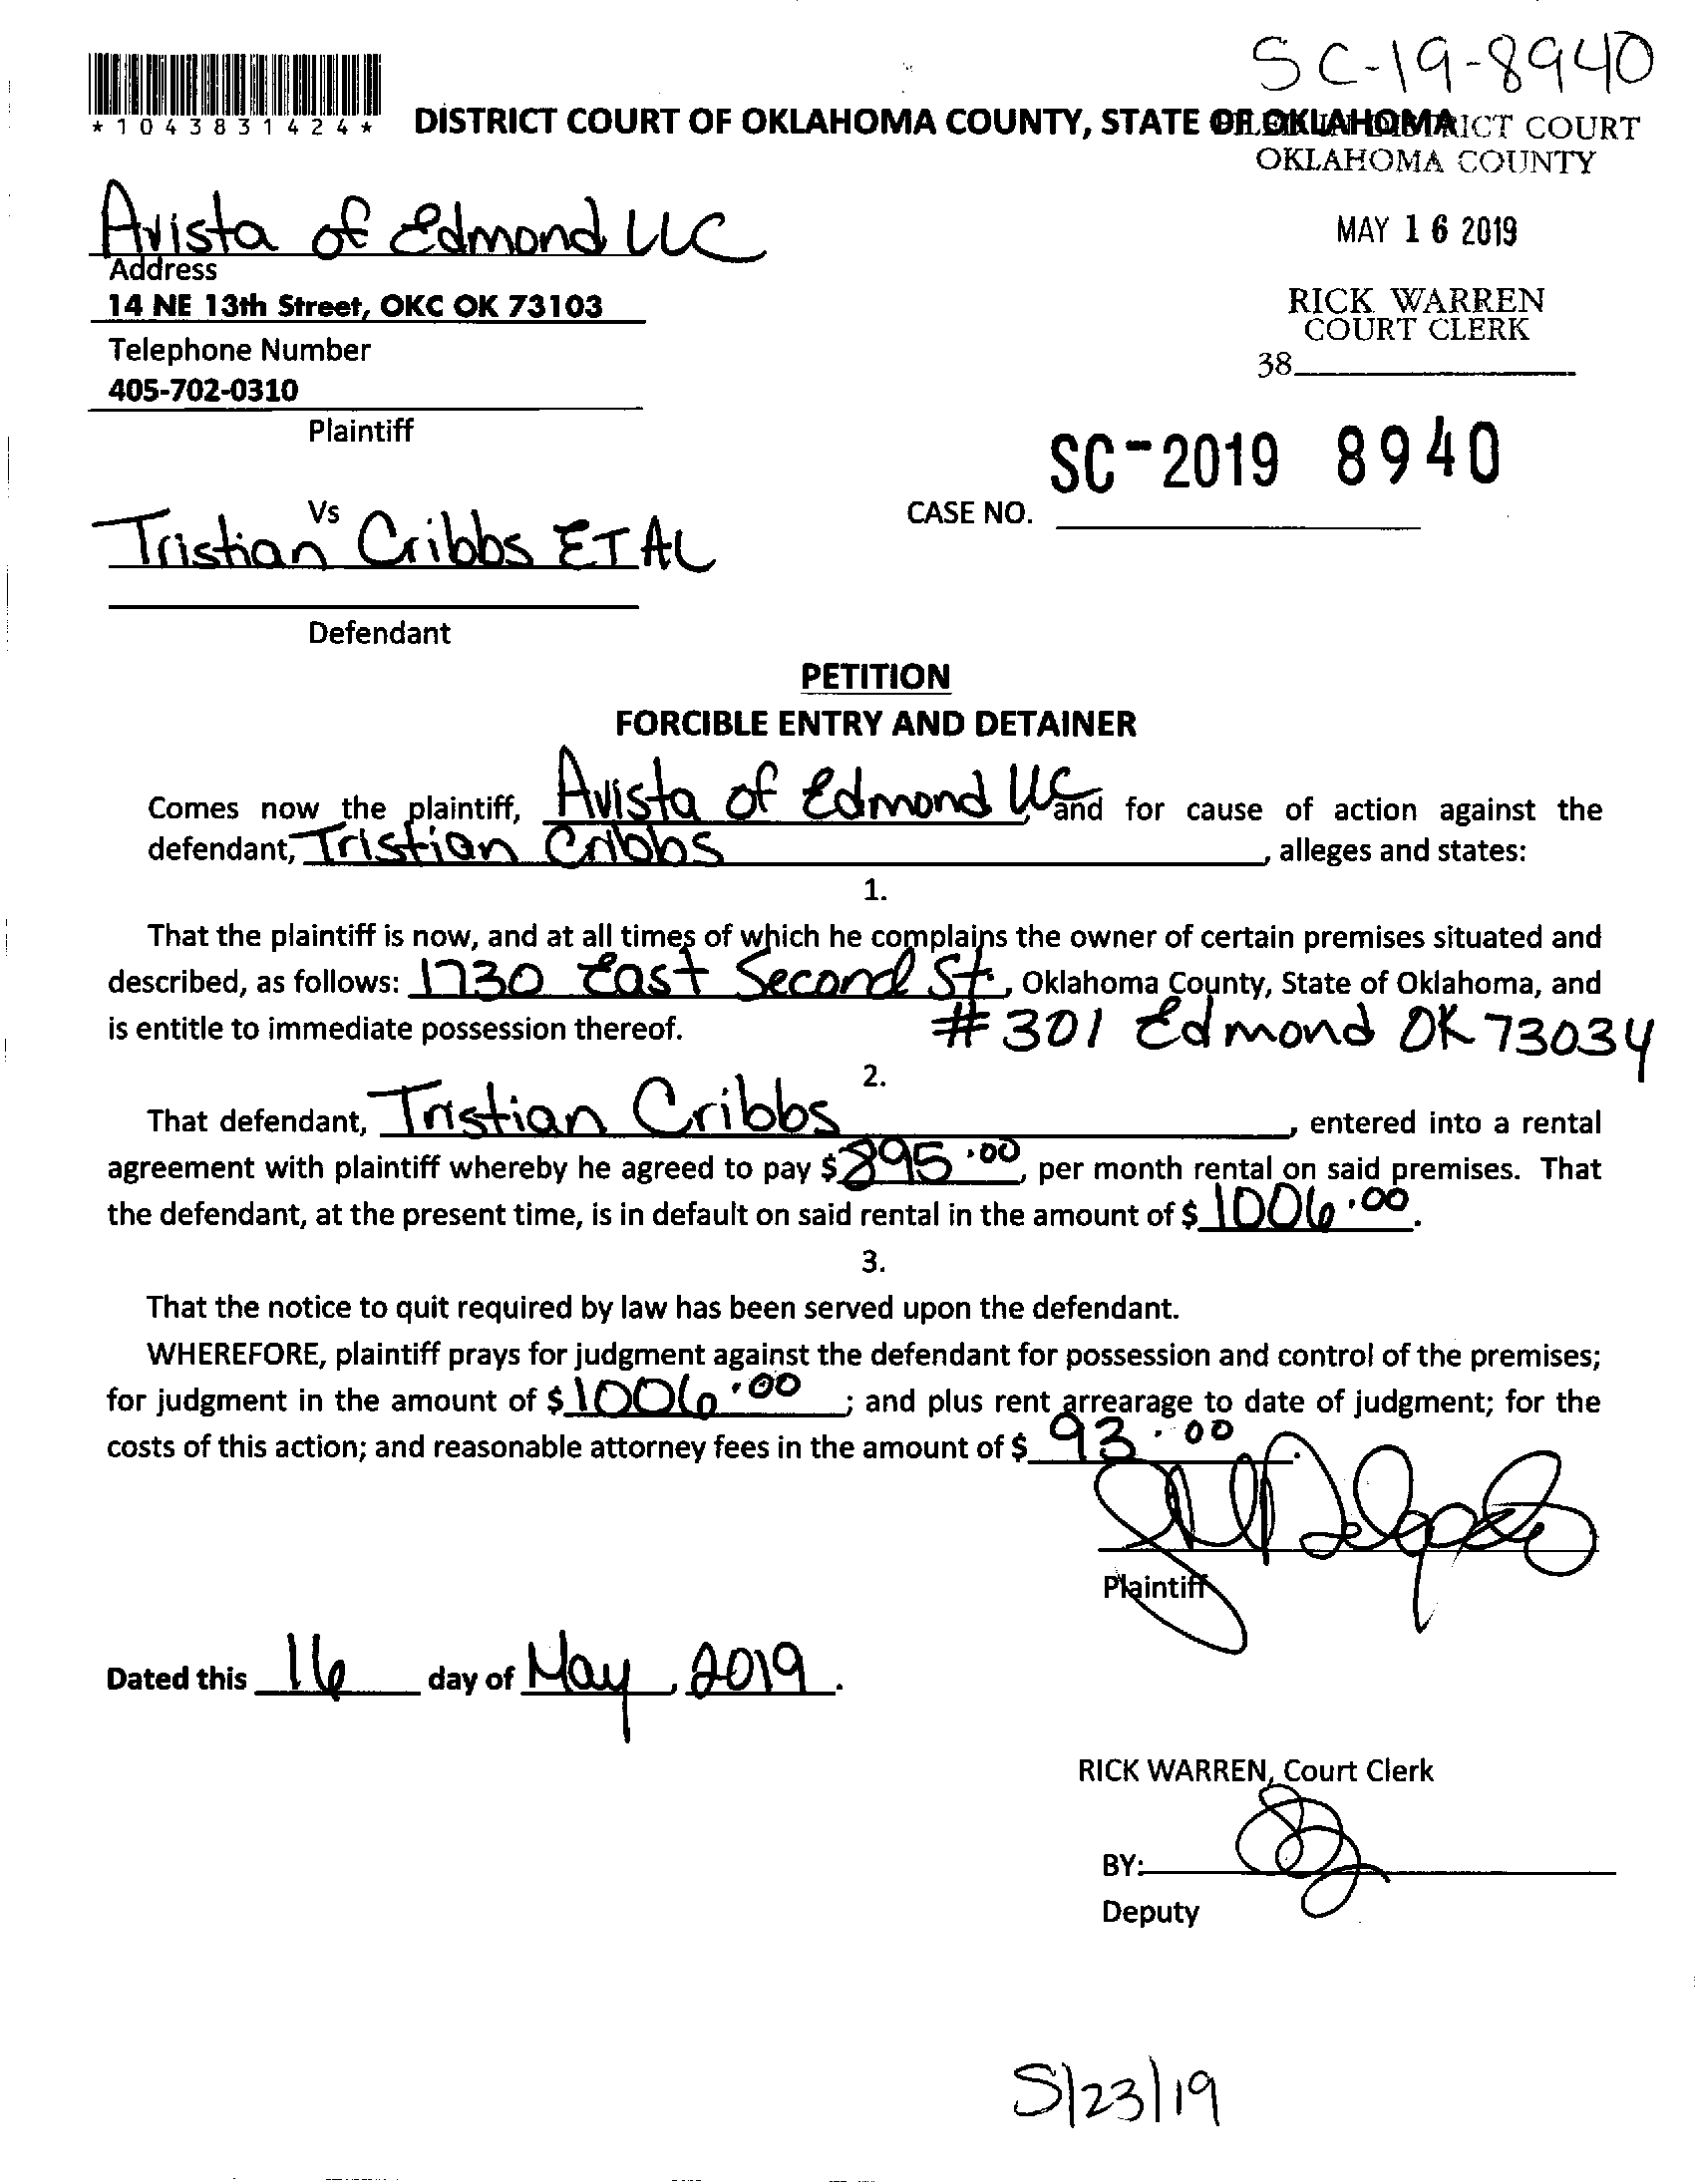 SC-19-8940
*1043831424*
DISTRICT COURT OF OKLAHOMA COUNTY, STATE OF OKLAHOMA
DISTRICT COURT
OKLAHOMA COUNTY
MAY 16 2019
RICK WARREN
COURT CLERK
38
Avista of Edmond LLC
Address
14 NE 13th Street, OKC OK 73103
Telephone Number
405-702-0310
Plaintiff
SC-2019 8940
CASE NO.
Vs
Tristian Cribbs ET AL
Defendant
PETITION
FORCIBLE ENTRY AND DETAINER
Comes now the plaintiff, Avista of Edmond LLC, and for cause of action against the
defendant, Tristian Cribbs, alleges and states:
1.
That the plaintiff is now, and at all times of which he complains the owner of certain premises situated and
described, as follows: 1730 East Second St., Oklahoma County, State of Oklahoma, and
is entitle to immediate possession thereof. #301 Edmond OK 73034
2.
That defendant, Tristian Cribbs, entered into a rental
agreement with plaintiff whereby he agreed to pay $895.00, per month rental on said premises. That
the defendant, at the present time, is in default on said rental in the amount of $1006.00.
3.
That the notice to quit required by law has been served upon the defendant.
WHEREFORE, plaintiff prays for judgment against the defendant for possession and control of the premises;
for judgment in the amount of $1006.00; and plus rent arrearage to date of judgment; for the
costs of this action; and reasonable attorney fees in the amount of $93.00.
Plaintiff
Dated this 16 day of May, 2019.
RICK WARREN, Court Clerk
BY:
Deputy
5/23/19